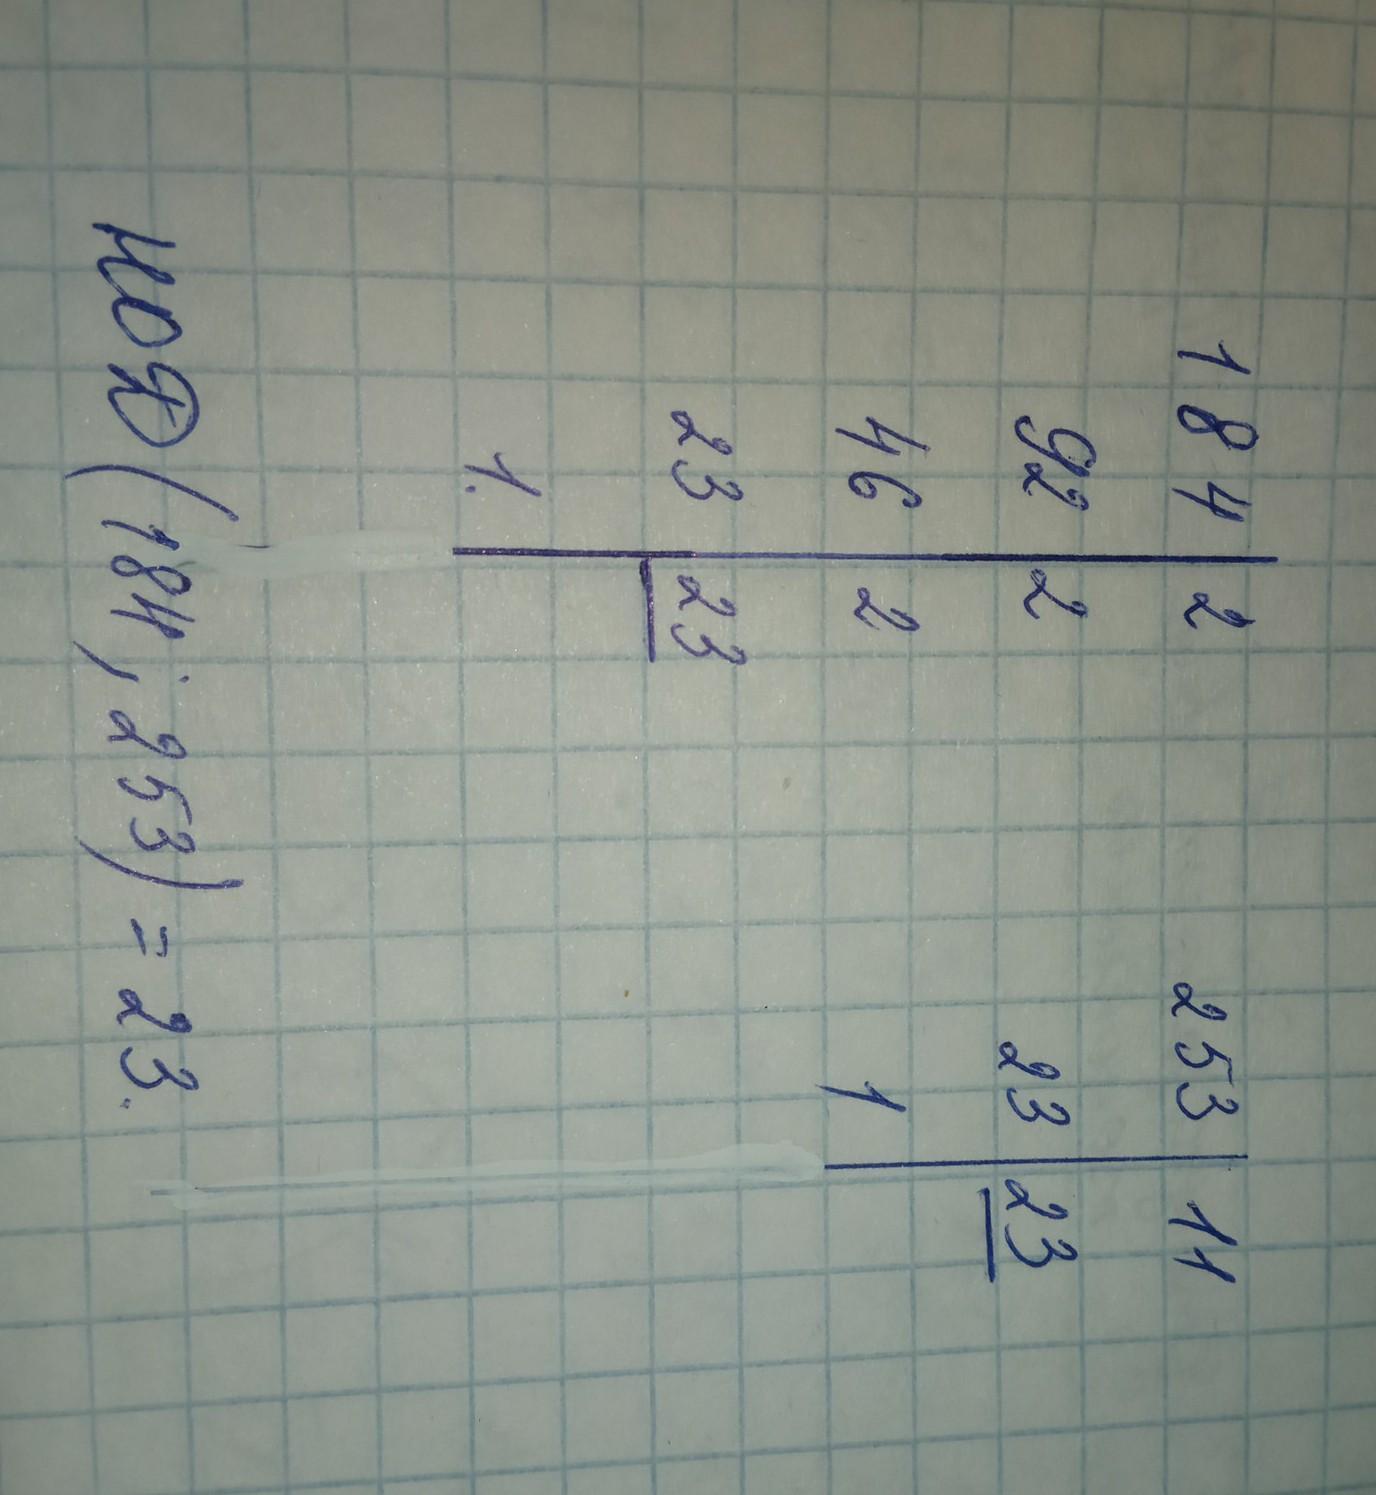 184 2 253 11
92 2 23 23
46 2 1
23 23
1.
НОД (184; 253) = 23.